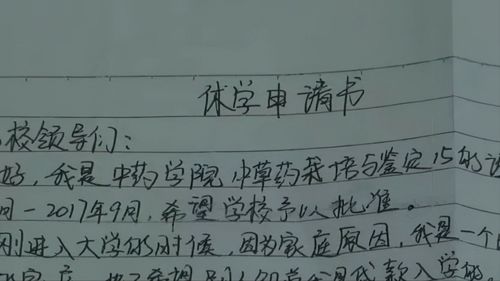 休学申请书
校领导们:
好,我是中药学院中草药栽培与鉴定15的
月-2017年9月,希望学校予以批准。
刚进入大学的时候,因为家庭原因,我是一个
贷款入学的.